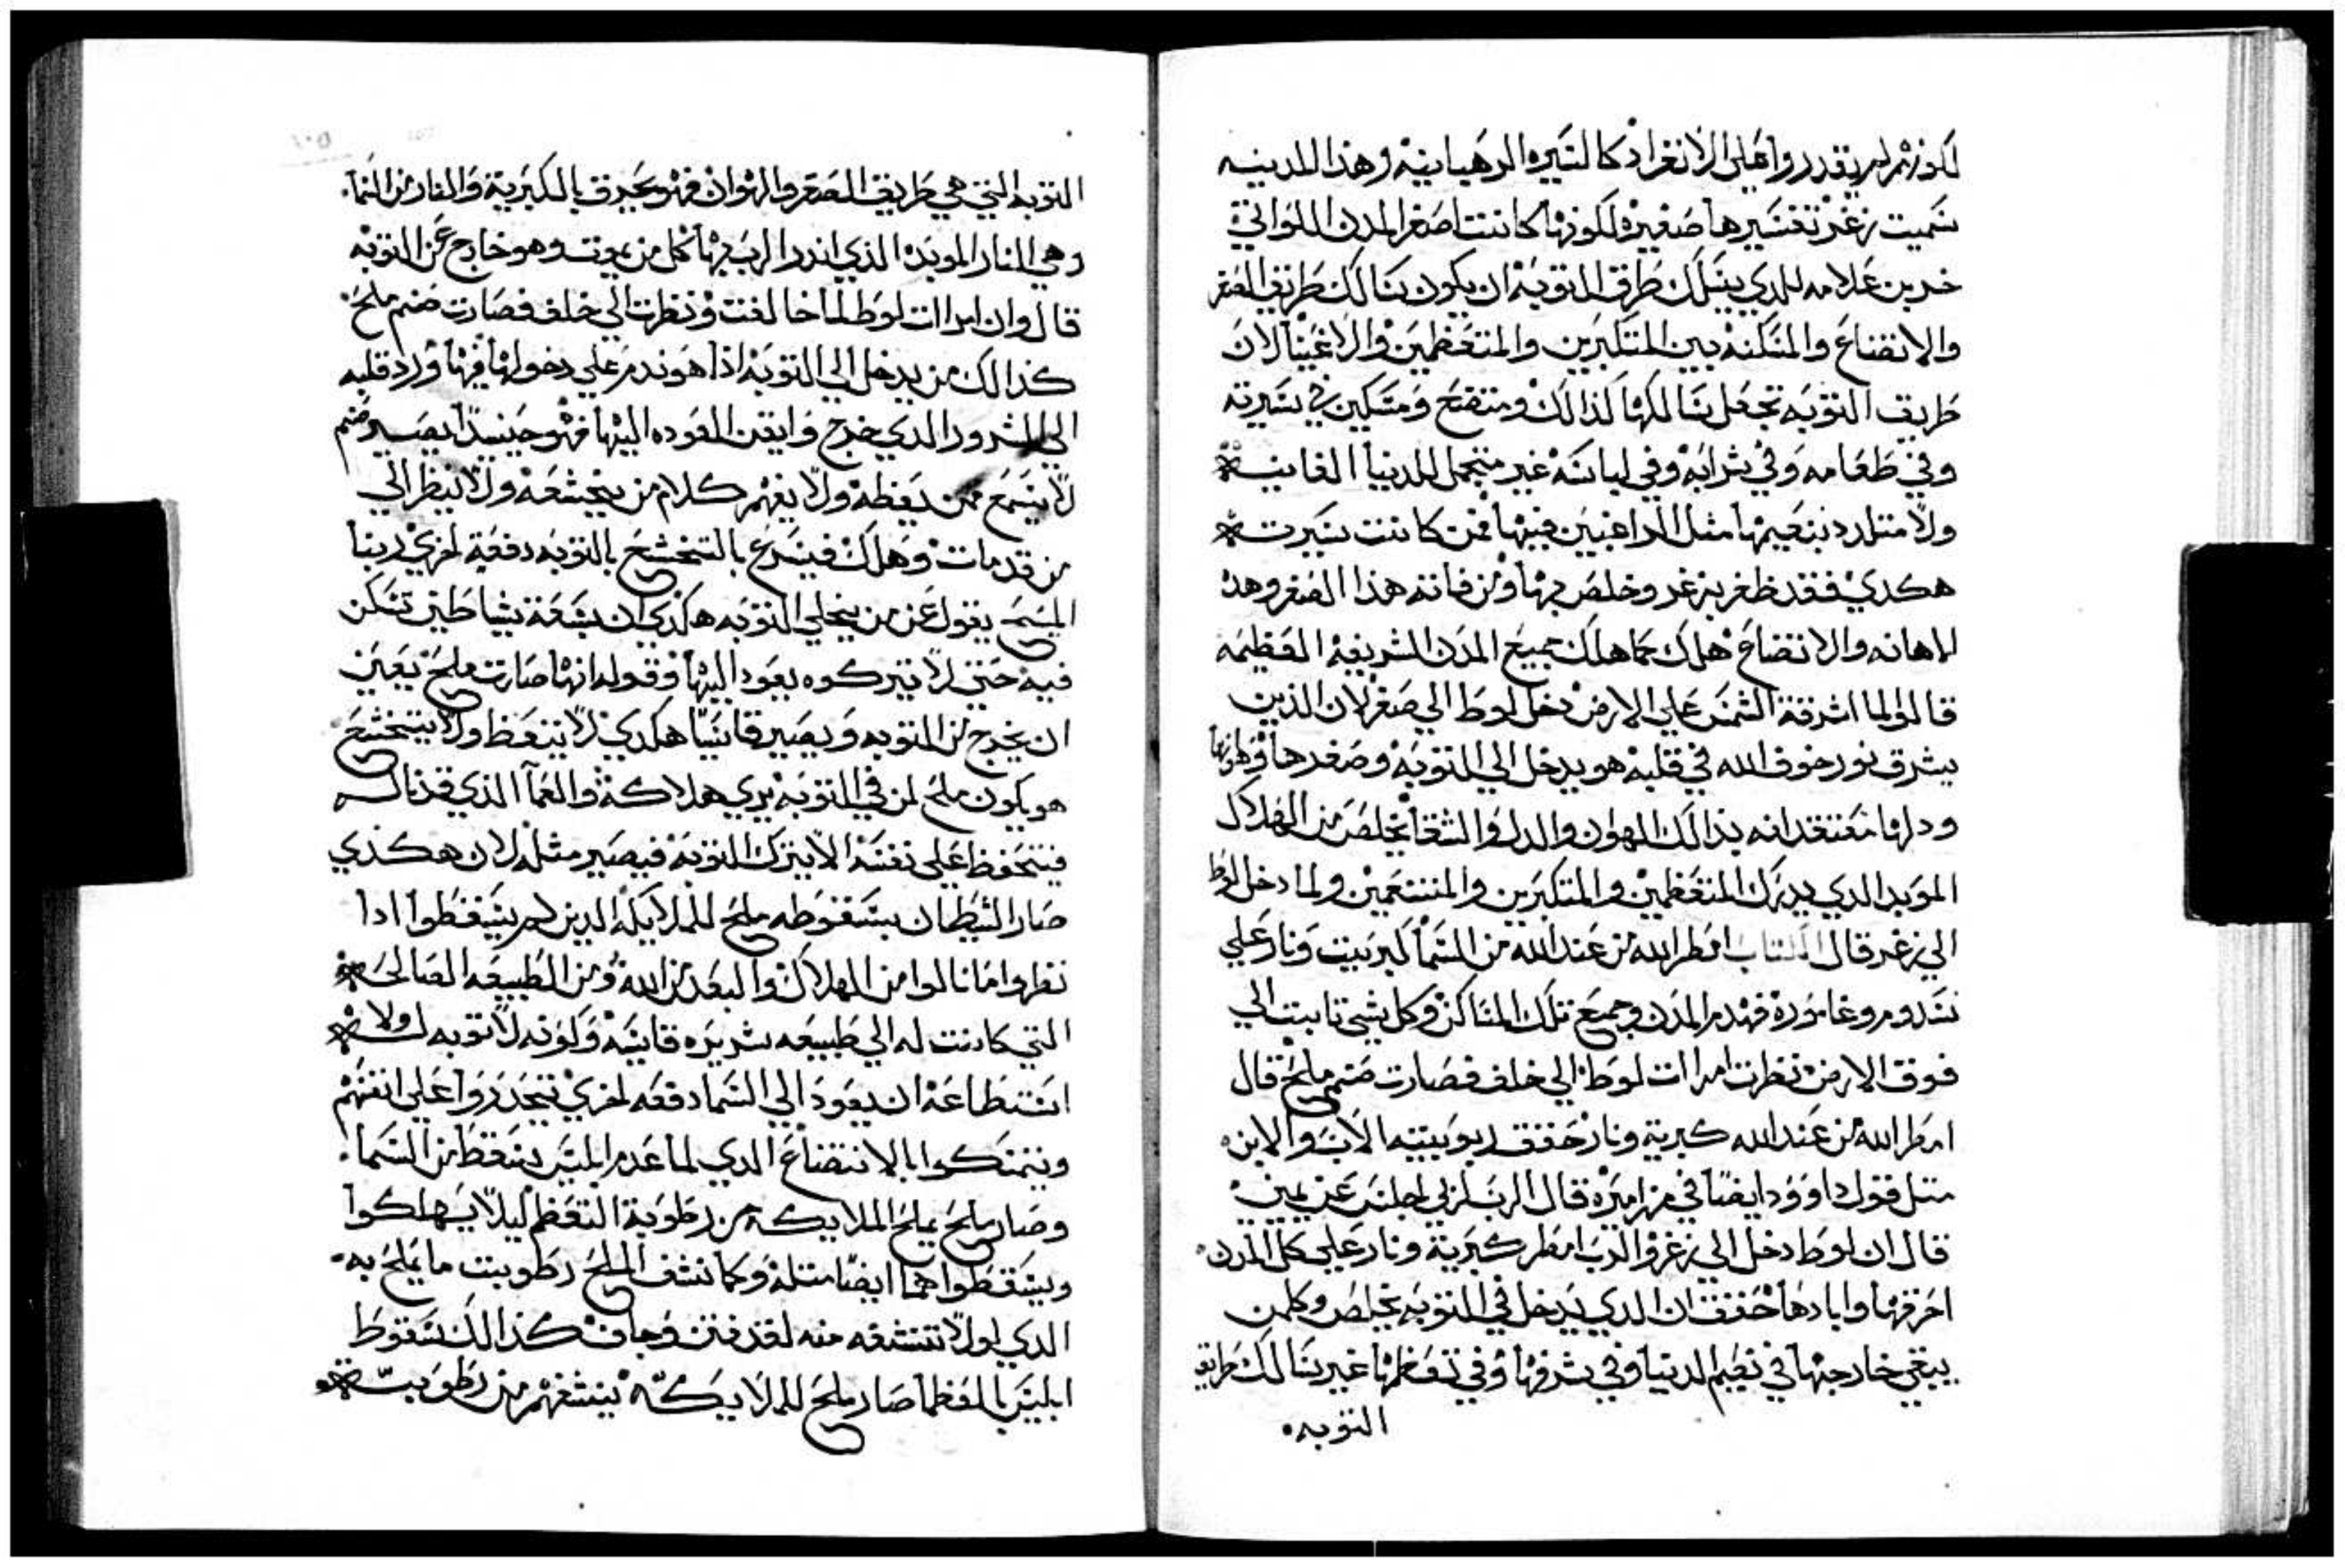 لكونهم لم يقدروا على الانفراد كالسيره الرهبانيه وهذا المدينه
سميت زغر تفسيرها صغيره لكونها كانت اصغر المدن اللواتي
خربن علامه للدي يسلك طرق التوبه ان يكون سالك طريق الصغر
والاتضاع والمسكنه بين المتكبرين والمتعظمين والاغنيا لان
طريق التوبه تجعل سالكها كذالك ومتضع ومسكين في سيرته
وفي طعامه وفي شرابه وفي لباسه غير متجمل للدنيا الفانيه
ولا متلدد بنعيمها مثل الراغبين فيها فمن كانت سيرته
هكدي فقد ظفر بزغر وخلص بها ومن فاته هذا الصغر وهده
الاهانه والاتضاع هلك كما هلك جميع المدن الشريفه العظيمه
قال ولما اشرقة الشمس علي الارض دخل لوط الي صغر لان الذين
يشرق نور خوف الله في قلبه هو يدخل الي التوبه وصغرها وهوانها
ودلها معتقد انه بذالك الهوان والدل والشقا يخلص من الهلاك
الموبد الدي يدرك المتعظمين والمتكبرين والمتنعمين ولما دخل لوط
الي زغر قال الكتاب امطر الله من عند الله من السما كبريت ونار علي
سدوم وغاموره فهدم المدن وجميع تلك المساكن وكل شي نابت الي
فوق الارض نظرت امرات لوط الي خلف فصارت صنم ملح قال
امطر الله من عند الله كبرية ونار حقق ربوبيته الاب والابن
متل قول داوود ايضا في مزاميره قال الرب لربي اجلس عن يميني
قال ان لوط دخل الي زغر والرب امطر كبرية ونار علي كل المدن
احرقها وابادها حقق ان الدي يدخل في التوبه يخلص وكلمن
يبقي خارجها في نعيم الدنيا وفي شرفها وفي تعظمها غير سالك طريق
التوبه
التوبه التي هي طريق الصغر والهوان فهو يحرق بالكبرية والنار من السما
وهي النار الموبده الذي اندر الرب بها كل من يموت وهو خارج عن التوبه
قال وان امرات لوط لما خالفت ونظرت الي خلف فصارت صنم ملح
كذالك من يدخل الي التوبه اذا هو ندم علي دخولها فيها ورد قلبه
الي الشرور الدي خرج وايقن العوده اليها فهو حينيدا يصير صنم
لا يسمع ممن يعظه ولا يفهم كلام من يخشعه ولا ينظر الي
من قد مات وهلك فيسرع بالتخشع بالتوبه دفعة اخري ربنا
المسيح يقول عن من يخلي التوبه هكذي ان سبعة شياطين تسكن
فيه حتي لا يتركوه يعود اليها وقوله انها صارت ملح يعني
ان يخرج من التوبه ويصير قاسيا هكدي لا يتعظ ولا يتخشع
هو يكون ملح لمن في التوبه يري هلاكه والعما الذي قد ناله
فيتحفظ علي نفسه الا يترك التوبه فيصير مثله لان هكذي
صار الشيطان بسقوطه ملح للملايكه الدين لم يسقطوا ادا
نظروا ما نالوا من الهلاك والبعد من الله ومن الطبيعه الصالحه
التي كانت له الي طبيعه شريره قاسيه وكونه لا توبه له ولا
استطاعة ان يعود الي السما دفعه اخري تحدروا علي انفسهم
ونتمسكوا بالاتضاع الدي لما عدم ابليس سقط من السما
وصار ملح يملح الملايكه من رطوبة التعظم ليلا يهلكوا
ويسقطوا هما ايضا متله وكما نشف الملح رطوبت ما يملح به
الدي لولا تنشفه منه لقد فتن وجاف كذالك سقوط
ابليس بالعظما صار ملح للملايكه ينشفهم من رطوبت